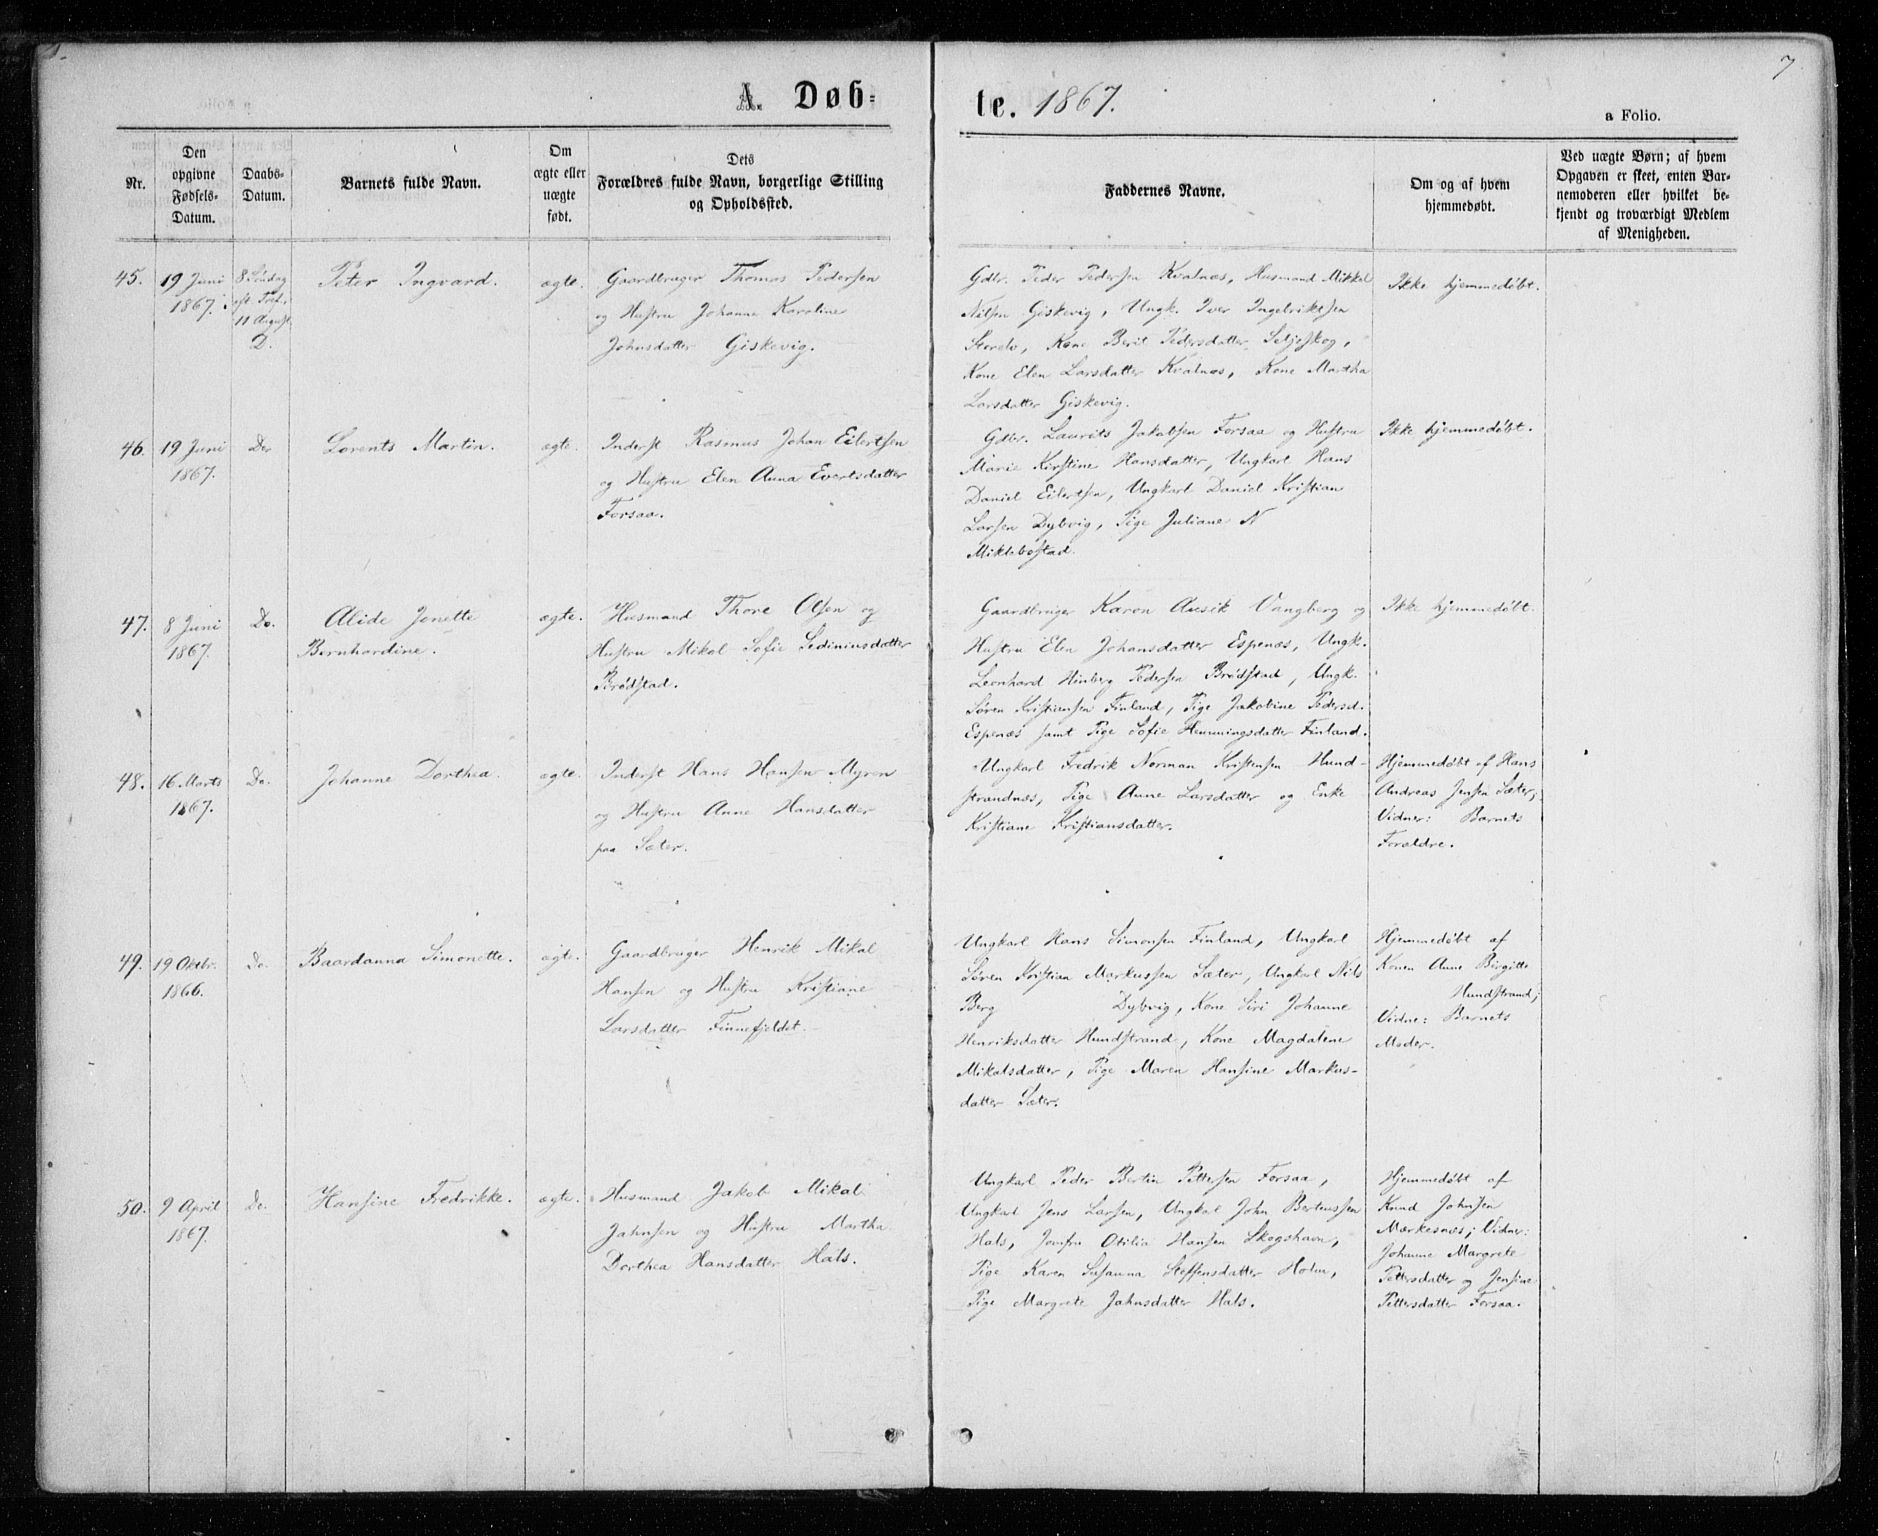 7
A. Døb-
te. 1867.
a Folio.
Nr.
Den
opgivne
Fødsels-
Datum.
Daabs-
Datum.
Barnets fulde Navn.
Om
ægte eller
uægte
født.
Dets
Forældres fulde Navn, borgerlige Stilling
og Opholdssted.
Faddernes Navne.
Om og af hvem
hjemmedøbt.
Ved uægte Børn; af hvem
Opgaven er skeet, enten Bar-
nemoderen eller hvilket be-
kjendt og troværdigt Medlem
af Menigheden.
45.
19 Juni
1867.
8 Søndag
eft. Tref.
11 August
D.
Peter Ingvard.
ægte.
Gaardbruger Thomas Pedersen
og Hustru Johanna Karoline
Johnsdatter Giskevig.
Gdbr. Peder Pedersen Kvalnæs, Husmand Mikkal
Nilsen Giskevig, Ungk. Iver Ingebriktsen
Storelv, Kone Berit Pedersdatter Seljeskog,
Kone Elen Larsdatter Kvalnæs, Kone Martha
Larsdatter Giskevig.
Ikke hjemmedøbt.
46.
19 Juni
1867.
Do
Lorents Martin.
ægte.
Inderst Rasmus Johan Eilertsen
og Hustru Elen Anna Evertsdatter
Forsaa.
Gdbr. Laurits Jakobsen Forsaa og Hustru
Marie Kirstine Hansdatter, Ungkarl Hans
Daniel Eilertsen, Ungkarl Daniel Kristian
Larsen Dybvig, Pige Juliane N
Miklebostad.
Ikke hjemmedøbt.
47.
8 Juni
1867.
Do.
Alide Jonette
Bernhardine.
ægte.
Husmand Thore Olsen og
Hustru Mikal Sofie Sediniusdatter
Brødstad.
Gaardbruger Karon Ausik Vangberg og
Hustru Elen Johansdatter Espenæs, Ungk.
Leonhard Hinberg Pedersen Brødstad, Ungk.
Søren Kristiansen Finland, Pige Jakobine Pedersd.
Espenæs samt Pige Sofie Hemmingsdatter Finland.
Ikke hjemmedøbt.
48.
16 Marts
1867.
Do.
Johanne Dorthea.
ægte.
Inderst Hans Hansen Myren
og Hustru Anne Hansdatter
paa Sæter.
Ungkarl Fredrik Norman Kristensen Hund-
strandnæs, Pige Anne Larsdatter og Enke
Kristiane Kristiansdatter.
Hjemmedøbt af Hans
Andreas Jensen Sæter;
Vidner: Barnets
Forældre.
49.
19 Oktbr.
1866.
Do.
Baardanna Simonette.
ægte.
Gaardbruger Henrik Mikal
Hansen og Hustru Kristiane
Larsdatter Finnefjeldet.
Ungkarl Hans Simonsen Finland, Ungkarl
Søren Kristian Markussen Sæter, Ungkarl Nils
Berg Dybvig, Kone Siri Johanne
Henriksdatter Hundstrand, Kone Magdalene
Mikalsdatter, Pige Maren Hansine Markus-
datter Sæter.
Hjemmedøbt af
Konen Anne Birgitte
Hundstrand;
Vidne: Barnets
Moder.
50.
9 April
1867.
Do.
Hansine Fredrikke.
ægte.
Husmand Jakob Mikal
Jahnsen og Hustru Martha
Dorthea Hansdatter Hals.
Ungkarl Peder Bertin Pettersen Forsaa,
Ungkarl Jens Larsen, Ungkal John Berteussen
Hals, Jomfru Otilia Hansen Skogshavn,
Pige Karen Susanna Steffensdatter Holm,
Pige Margrete Jahnsdatter Hals.
Hjemmedøbt af
Knud Johnsen
Mærkesnæs; Vidner:
Johanne Margrete
Pettersdatter og Jensine
Pettersdatter Forsaa.